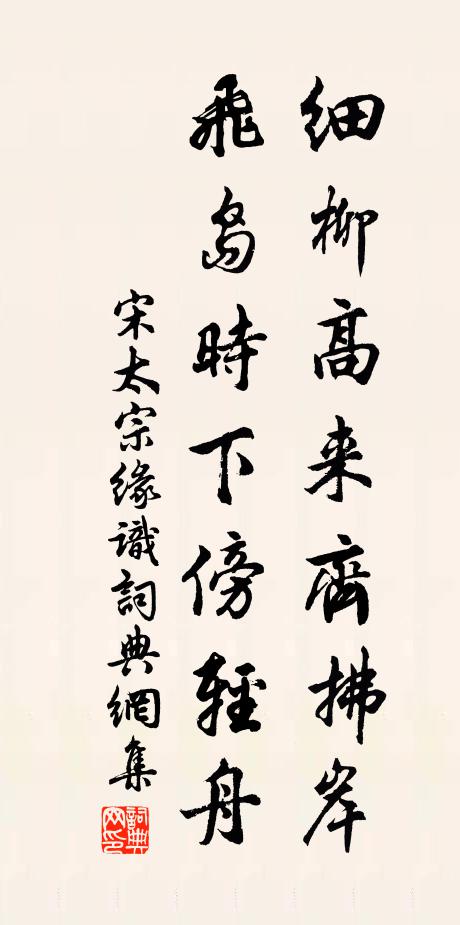 細柳高来齊拂岸
飛鳥時下傍輕舟
宋太宗緣識詞典網集
詞典網印